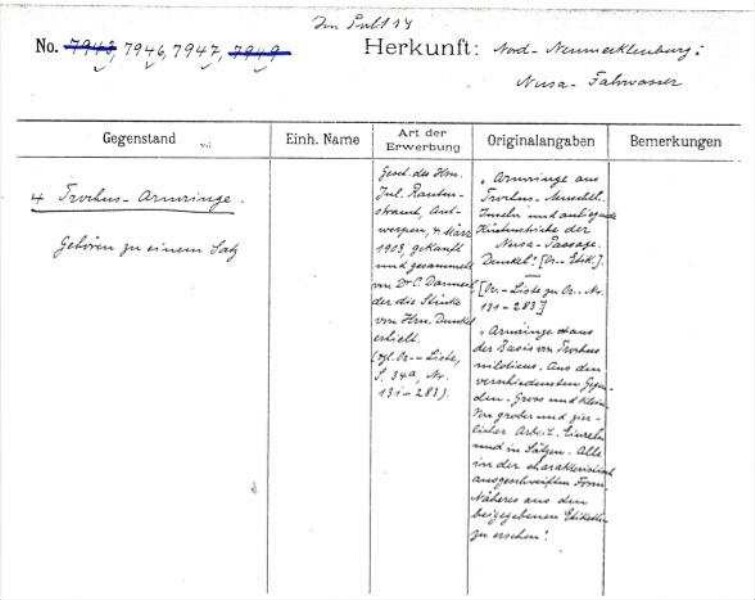 Im Pult 14
No. 7943, 7946, 7947, 7949
Herkunft: Nord-Neumecklenburg:
Nusa-Fahrwasser
Gegenstand
Einh. Name
Art der Erwerbung
Originalangaben
Bemerkungen
4 Trochus-Armringe.
Gehören zu einem Satz
Gesch. des Hrn.
Jul. Rauten-
strauch, Ant-
werpen, 4 März
1903, gekauft
und gesammelt
von Dr C. Danneil
der die Stücke
von Hrn. Dunkel
erhielt.
(vgl. Or.-Liste,
S. 34a, Nr.
131-283).
„Armringe aus
Trochus-Muschel.
Inseln und anliegende
Küstenstriche der
Nusa-Passage.
Dunkel". [Or.-Etik.].
[Or.-Liste zu Or.-Nr.
131-283]
„Armringe aus
der Basis von Trochus
niloticus. Aus den
verschiedensten Gegen-
den. Gross und klein.
Von grober und zier-
licher Arbeit. Einzeln
und in Sätzen. Alle
in der charakteristisch
ausgeschweiften Form.
Näheres aus den
beigegebenen Etiketten
zu ersehen".